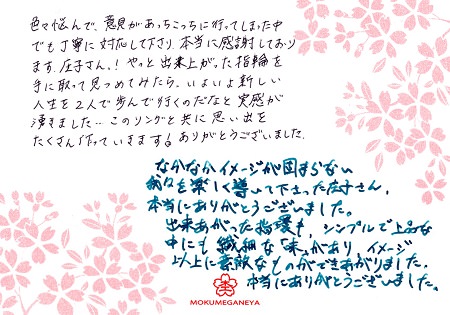 色々悩んで、意見があっちこっちに行ってしまった中
でも丁寧に対応して下さり、本当に感謝しており
ます。庄子さん、！やっと出来上がった指輪を
手に取って見つめてみたら、いよいよ新しい
人生を2人で歩んで行くのだなと実感が
湧きました…このリングと共に思い出を
たくさん作っていきます！ありがとうございました。
なかなかイメージが固まらない
我々を楽しく導いて下さった庄子さん。
本当にありがとうございました。
出来あがった指環も、シンプルで上品な
中にも繊細な「味」があり、イメージ
以上に素敵なものができあがりました。
本当にありがとうございました。
MOKUMEGANEYA